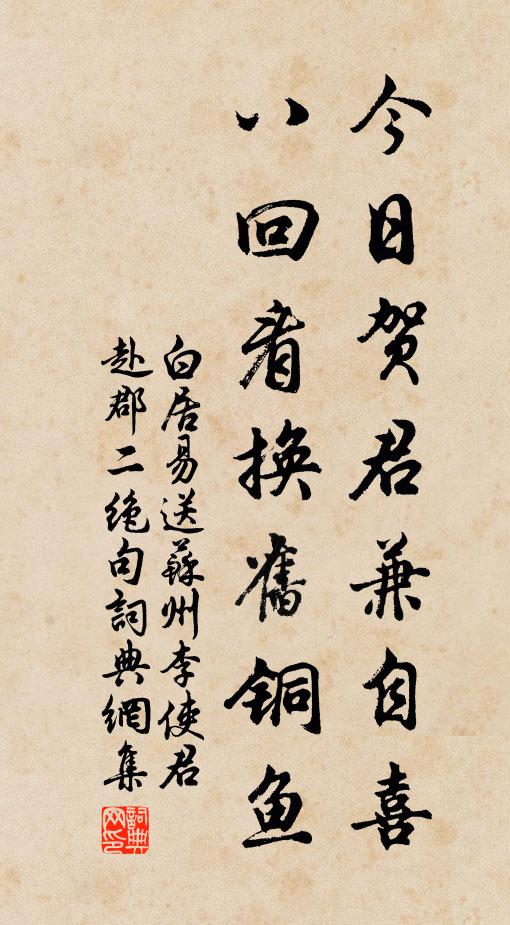 今日贺君兼自喜
八回看换旧铜鱼
白居易送蘇州李使君
赴郡二绝句詞典網集
詞典网印